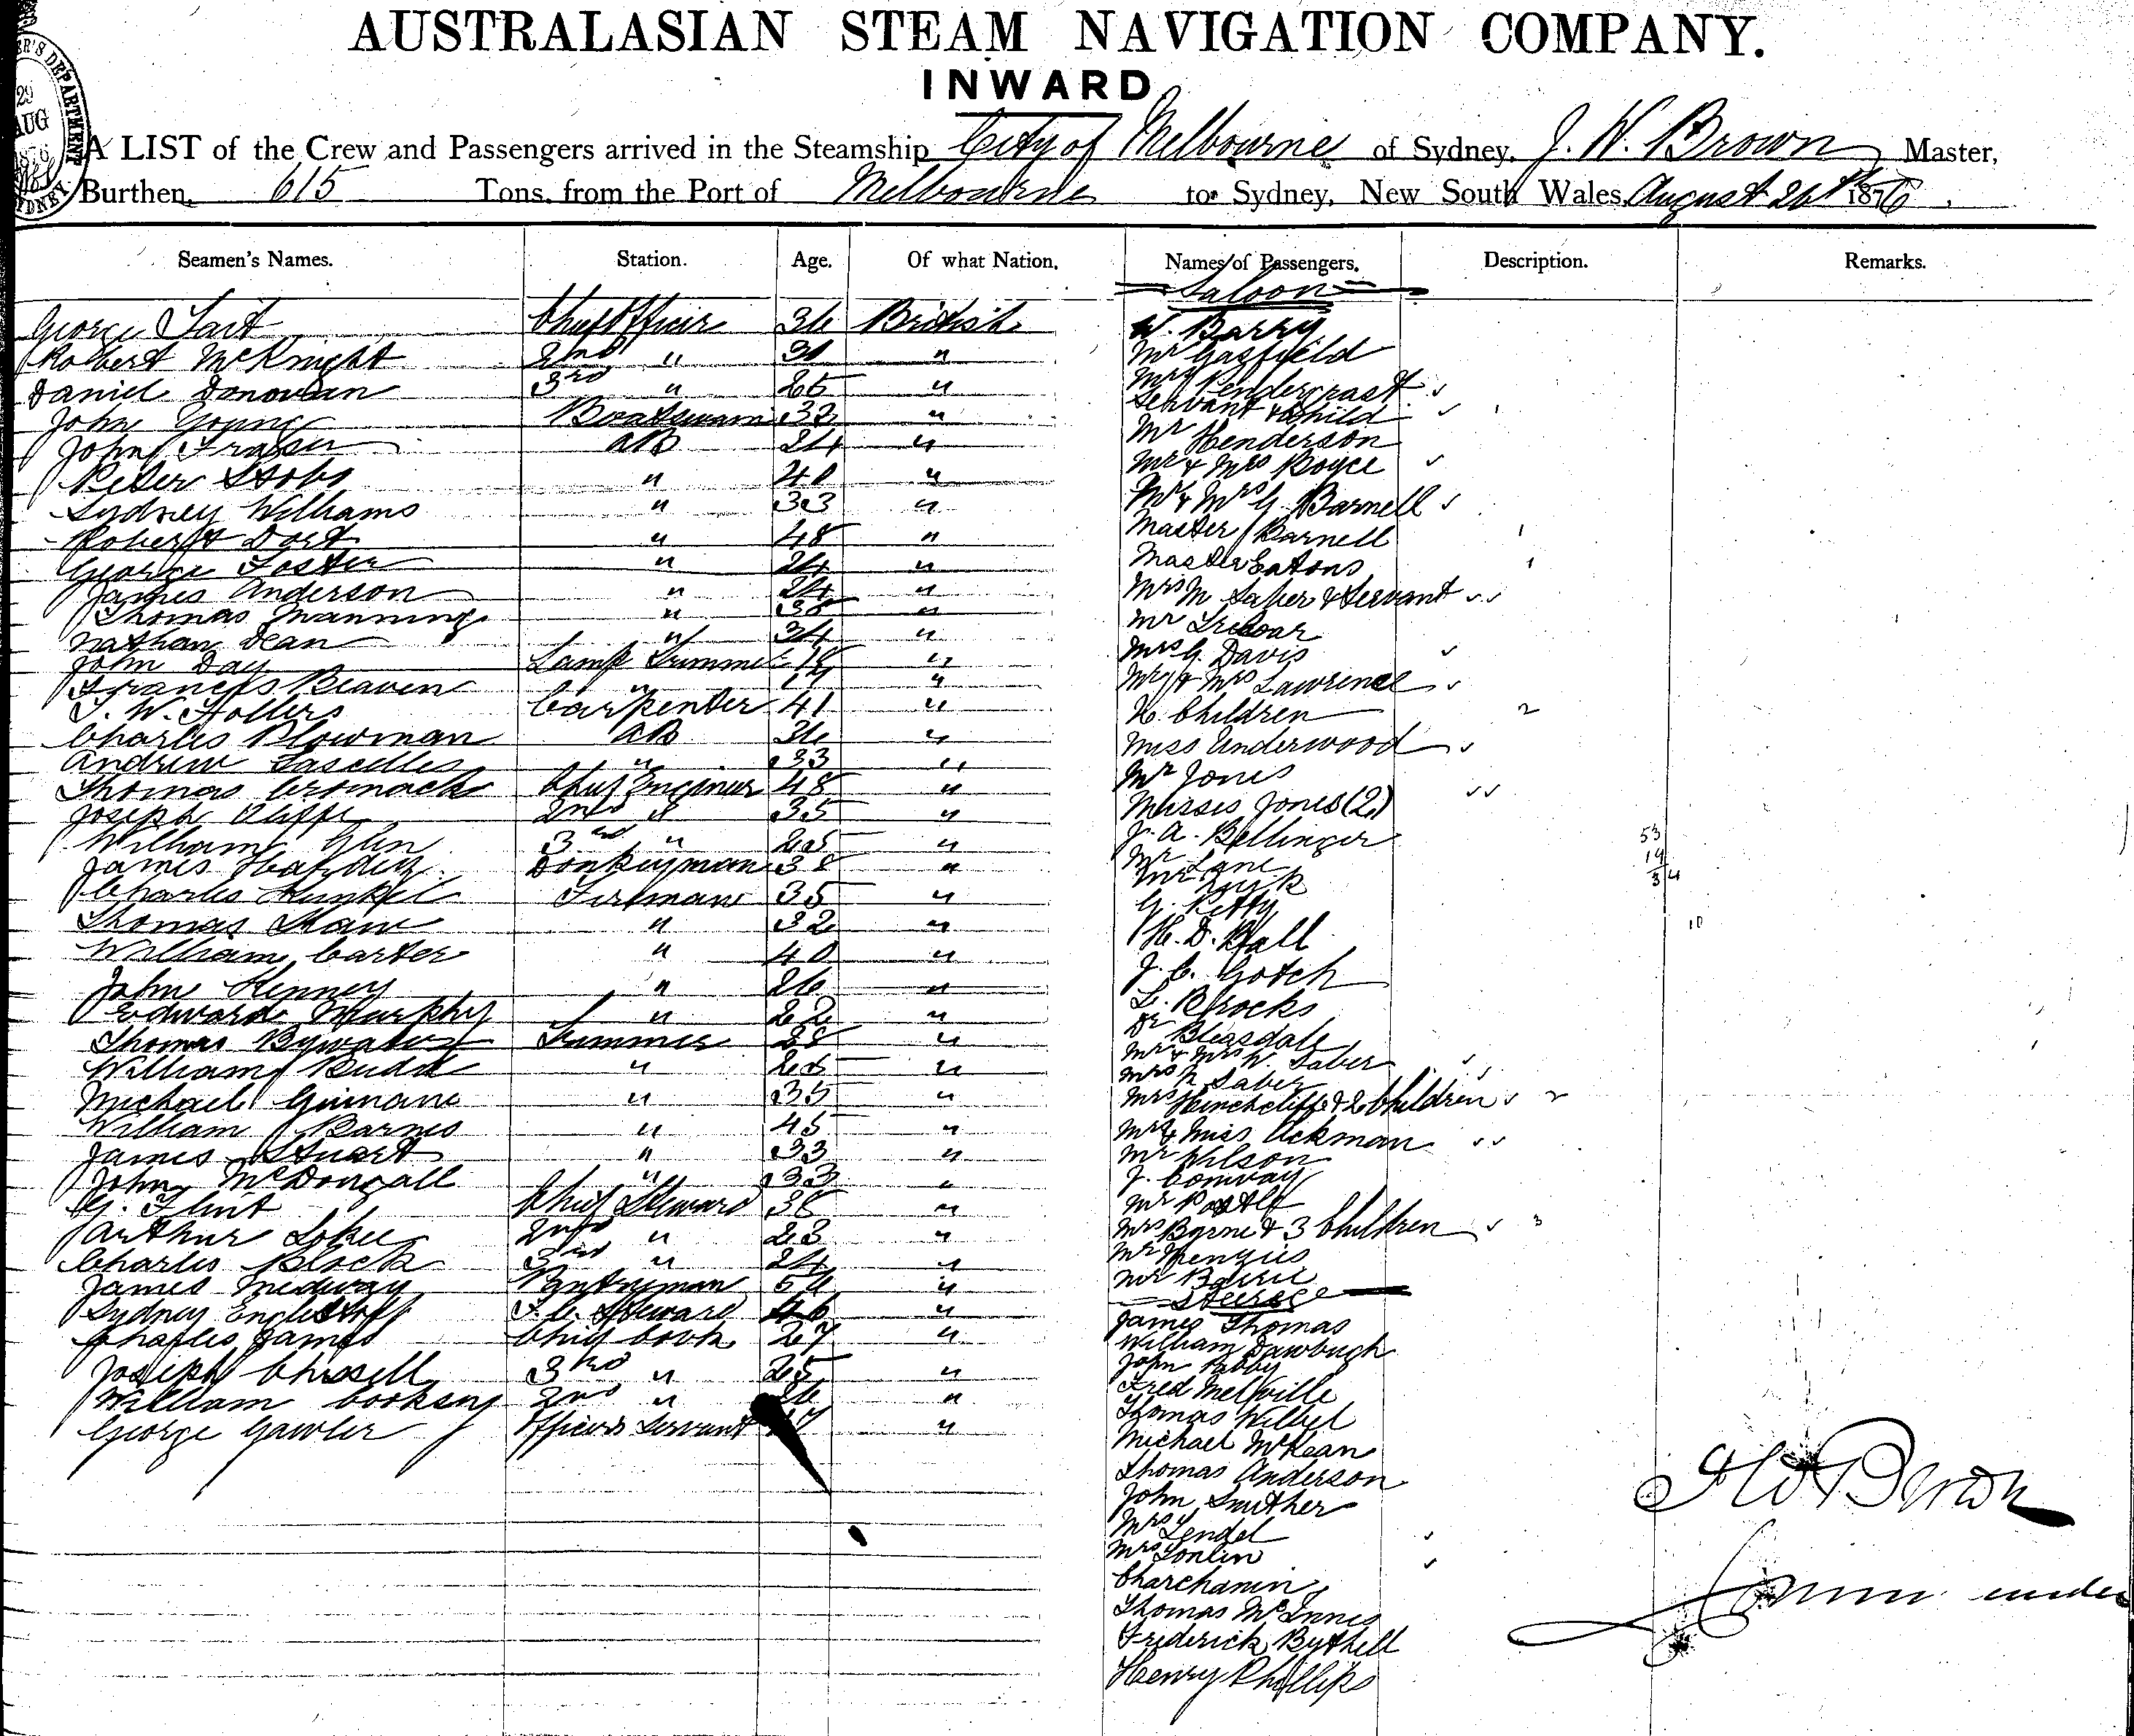 AUSTRALASIAN STEAM NAVIGATION COMPANY.
INWARD
A LIST of the Crew and Passengers arrived in the Steamship City of Melbourne of Sydney, J. W. Brown Master,
Burthen, 615 Tons, from the Port of Melbourne to Sydney, New South Wales, August 26th 1876
Seamen's Names. Station. Age. Of what Nation. Names of Passengers. Description. Remarks.
Saloon
George Tait Chief Officer 36 British W. Barry
Robert McKnight 2nd " " Mr Gasfield
Daniel Donovan 3rd " 26 " Mrs Pendergrast
Servant & Child
John Young Boatswain 32 " Mr Henderson
John Fraser AB 24 " Mr & Mrs Boyce
Peter Stobs " 40 " Mr & Mrs G. Barnell
Sydney Williams " 33 " Master Barnell
Robert Dort " 48 " Master Eatons
George Foster " 24 " Mrs M Saber & Servant
James Anderson " 24 " Mr Treloar
Thomas Manning " 38 " Mrs G. Davis
Nathan Dean " 34 " Mr & Mrs Lawrence
John Day Lamp Trimmer 18 " Children 2
Francis Beaven " " Miss Underwood
J. W. Hollers Carpenter 41 " Mr Jones
Charles Plowman AB 36 " Misses Jones (2)
Andrew Lascelles " 33 " J. A. Bellinger
Thomas Cromack Chief Engineer 48 " Mr Lane
Joseph Cliffe 2nd " 35 " Mr
William Glen 3rd " " G. Petty
James Donkeyman 38 " H. D. Hall
Charles Kunkel Fireman 35 " J. C. Gotch
Thomas " 32 " L. Brocks
William Carter " 40 " Dr Bleasdale
John Kenney " 26 " Mr & Mrs W. Saber
Edward Murphy " 22 " Mrs N Saber
Thomas Bywater Trimmer 28 " Mrs Hinchcliffe & 2 Children 2
William Budd " " Mr & Miss Ackman
Michael " 35 " Mr Wilson
William Barnes " 45 " J. Conway
James Stuart " 33 " Mr
John McDougall " 33 " Mrs Byrne & 3 Children 3
G. Flint Chief Steward 36 " Mr Menzies
Arthur 2nd " 23 " Mr
Charles Block 3rd " 24 " Steerage
James Medway Pantryman " James Thomas
Sydney Steward 46 " William Dawbugh
Charles James Chief Cook 27 " John
Joseph Chissell 3rd " 25 " Fred Melville
William 2nd " 26 " Thomas
George Gawler Officers Servant 17 " Michael McKean
Thomas Anderson
John Smither
Mrs Lendel
Mrs Conlin
Charchanin
Thomas McInnes
Frederick Bythell
Henry Phillips
53
19
34
10
J W Brown